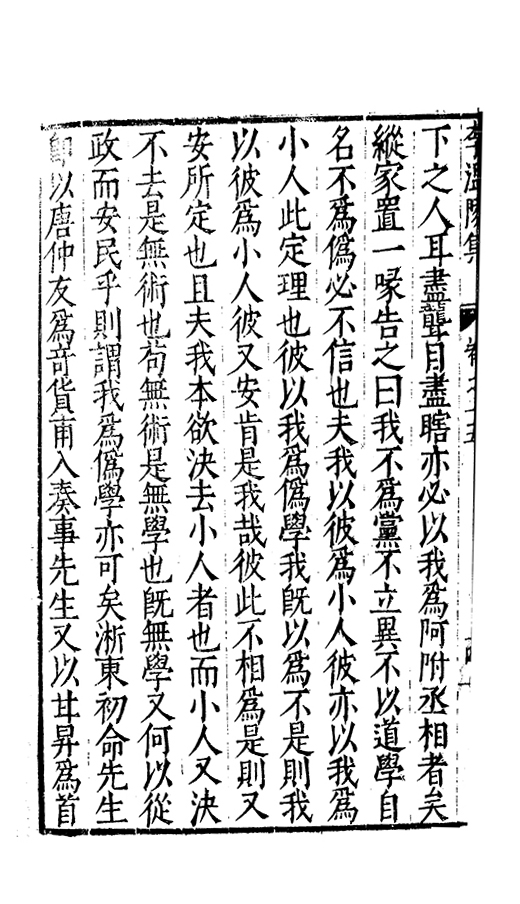 李溫陵集 卷之十五
下之人耳盡聾目盡瞎亦必以我為阿附丞相者矣
縱家置一喙告之曰我不為黨不立異不以道學自
名不為偽必不信也夫我以彼為小人彼亦以我為
小人此定理也彼以我為偽學我旣以為不是則我
以彼為小人彼又安肯是我哉彼此不相為是則又
安所定也且夫我本欲決去小人者也而小人又決
不去是無術也茍無術是無學也旣無學又何以從
政而安民乎則謂我為偽學亦可矣淅東初命先生
卽以唐仲友為竒貨甫入奏事先生又以甘昇為首